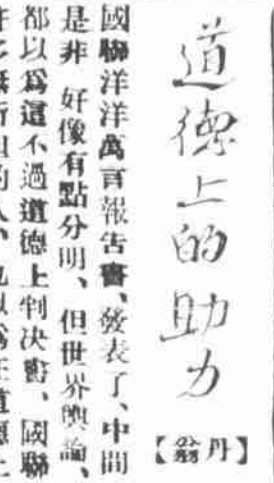 道德上的助力
【丹翁】
國聯洋洋萬言報告書、發表了、中間
是非 好像有點分明、但世界輿論、
都以爲這不過道德上判决書、國聯